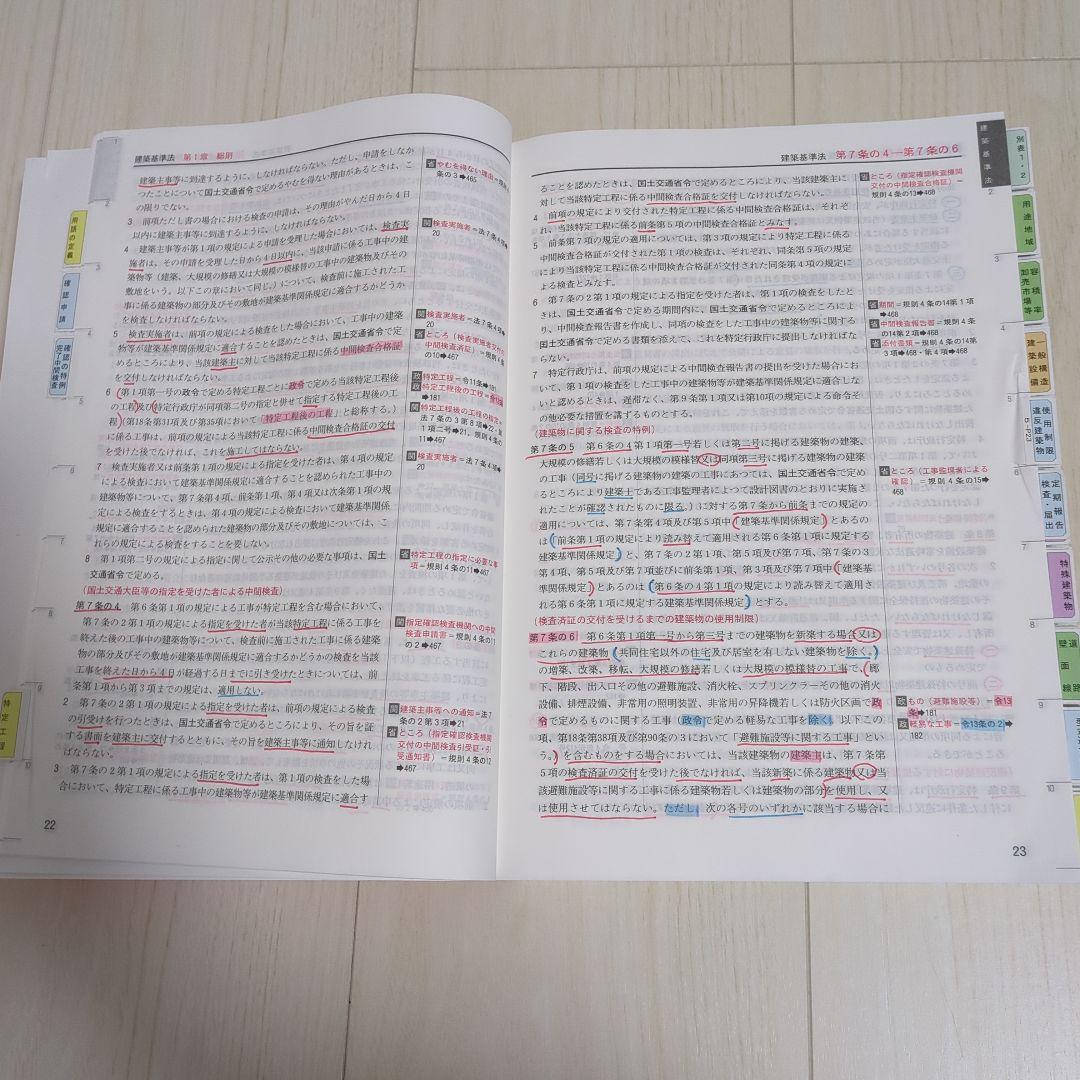 建築基準法 第1章 総則
建築主事等に到達するように、しなければならない。ただし、申請をしなか
つたことについて国土交通省令で定めるやむを得ない理由があるときは、こ
の限りでない。
3 前項ただし書の場合における検査の申請は、その理由がやんだ日から4日
以内に建築主事等に到達するように、しなければならない。
4 建築主事等が第1項の規定による申請を受理した場合においては、検査実
施者は、その申請を受理した日から4日以内に、当該申請に係る工事中の建
築物等（建築、大規模の修繕又は大規模の模様替の工事中の建築物及びその
敷地をいう。以下この章において同じ。）について、検査前に施工された工
事に係る建築物の部分及びその敷地が建築基準関係規定に適合するかどうか
を検査しなければならない。
5 検査実施者は、前項の規定による検査をした場合において、工事中の建築
物等が建築基準関係規定に適合することを認めたときは、国土交通省令で定
めるところにより、当該建築主に対して当該特定工程に係る中間検査合格証
を交付しなければならない。
6 第1項第一号の政令で定める特定工程ごとに政令で定める当該特定工程後
の工程及び特定行政庁が同項第二号の指定と併せて指定する特定工程後の工
程（第18条第31項及び第35項において「特定工程後の工程」と総称する。）
に係る工事は、前項の規定による当該特定工程に係る中間検査合格証の交付
を受けた後でなければ、これを施工してはならない。
7 検査実施者又は前条第1項の規定による指定を受けた者は、第4項の規定
による検査において建築基準関係規定に適合することを認められた工事中の
建築物等について、第7条第4項、前条第1項、第4項又は次条第1項の規
定による検査をするときは、第4項の規定による検査において建築基準関係
規定に適合することを認められた建築物の部分及びその敷地については、こ
れらの規定による検査をすることを要しない。
8 第1項第二号の規定による指定に関して公示その他の必要な事項は、国土
交通省令で定める。
（国土交通大臣等の指定を受けた者による中間検査）
第7条の4 第6条第1項の規定による工事が特定工程を含む場合において、
第7条の2第1項の規定による指定を受けた者が当該特定工程に係る工事を
終えた後の工事中の建築物等について、検査前に施工された工事に係る建築
物の部分及びその敷地が建築基準関係規定に適合するかどうかの検査を当該
工事を終えた日から4日が経過する日までに引き受けたときについては、前
条第1項から第3項までの規定は、適用しない。
2 第7条の2第1項の規定による指定を受けた者は、前項の規定による検査
の引受けを行つたときは、国土交通省令で定めるところにより、その旨を証
する書面を建築主に交付するとともに、その旨を建築主事等に通知しなけれ
ばならない。
3 第7条の2第1項の規定による指定を受けた者は、第1項の検査をした場
合において、特定工程に係る工事中の建築物等が建築基準関係規定に適合す
22
省 やむを得ない理由＝規則4
条の3➡465
関 検査実施者＝法7条4項➡
20
関 検査実施者＝法7条4項➡
20
省 ところ（検査実施者交付の
中間検査合格証）＝規則4条
の10➡467
政 特定工程＝令11条➡181
政 特定工程後の工程＝令12条
➡181
関 特定工程後の工程の指定＝
関 検査実施者＝法7条4項➡
20
省 特定工程の指定に必要な事
項＝規則4条の11➡467
関 指定確認検査機関への中間
の2➡467
関 建築主事等への通知＝法7
条の2第3項➡21
省 ところ（指定確認検査機関
交付の中間検査引受証・引
➡467
用語の定義
確認申請
確認の特例
完了中間検査
特定工程
建築基準法 第7条の4―第7条の6
ることを認めたときは、国土交通省令で定めるところにより、当該建築主に
対して当該特定工程に係る中間検査合格証を交付しなければならない。
4 前項の規定により交付された特定工程に係る中間検査合格証は、それぞ
れ、当該特定工程に係る前条第5項の中間検査合格証とみなす。
5 前条第7項の規定の適用については、第3項の規定により特定工程に係る
中間検査合格証が交付された第1項の検査は、それぞれ、同条第5項の規定
により当該特定工程に係る中間検査合格証が交付された同条第4項の規定に
よる検査とみなす。
6 第7条の2第1項の規定による指定を受けた者は、第1項の検査をしたと
きは、国土交通省令で定める期間内に、国土交通省令で定めるところによ
り、中間検査報告書を作成し、同項の検査をした工事中の建築物等に関する
国土交通省令で定める書類を添えて、これを特定行政庁に提出しなければな
らない。
7 特定行政庁は、前項の規定による中間検査報告書の提出を受けた場合に
おいて、第1項の検査をした工事中の建築物等が建築基準関係規定に適合しな
いと認めるときは、遅滞なく、第9条第1項又は第10項の規定による命令そ
の他必要な措置を講ずるものとする。
（建築物に関する検査の特例）
第7条の5 第6条の4第1項第一号若しくは第二号に掲げる建築物の建築、
大規模の修繕若しくは大規模の模様替又は同項第三号に掲げる建築物の建築
の工事（同号に掲げる建築物の建築の工事にあつては、国土交通省令で定め
るところにより建築士である工事監理者によつて設計図書のとおりに実施さ
れたことが確認されたものに限る。）に対する第7条から前条までの規定の
適用については、第7条第4項及び第5項中「建築基準関係規定」とあるの
は「前条第1項の規定により読み替えて適用される第6条第1項に規定する
建築基準関係規定」と、第7条の2第1項、第5項及び第7項、第7条の3
第4項、第5項及び第7項並びに前条第1項、第3項及び第7項中「建築基
準関係規定」とあるのは「第6条の4第1項の規定により読み替えて適用さ
れる第6条第1項に規定する建築基準関係規定」とする。
（検査済証の交付を受けるまでの建築物の使用制限）
第7条の6 第6条第1項第一号から第三号までの建築物を新築する場合又は
これらの建築物（共同住宅以外の住宅及び居室を有しない建築物を除く。）
の増築、改築、移転、大規模の修繕若しくは大規模の模様替の工事で、廊
下、階段、出入口その他の避難施設、消火栓、スプリンクラーその他の消火
設備、排煙設備、非常用の照明装置、非常用の昇降機若しくは防火区画で政
令で定めるものに関する工事（政令で定める軽易な工事を除く。以下この
項、第18条第38項及び第90条の3において「避難施設等に関する工事」とい
う。）を含むものをする場合においては、当該建築物の建築主は、第7条第
5項の検査済証の交付を受けた後でなければ、当該新築に係る建築物又は当
該避難施設等に関する工事に係る建築物若しくは建築物の部分を使用し、又
は使用させてはならない。ただし、次の各号のいずれかに該当する場合に
23
省 ところ（指定確認検査機関
交付の中間検査合格証）＝
規則4条の13➡468
省 期間＝規則4条の14第1項
➡468
省 中間検査報告書＝規則4条
の14第2項➡468
省 添付書類＝規則4条の14第
3項➡468・第4項➡468
省 ところ（工事監理者による
確認）＝規則4条の15➡
468
政 もの（避難施設等）＝令13
条➡181
政 軽易な工事＝令13条の2➡
182
建築基準法
別表1・2
用途地域
容積率
卸売市場等
一般構造
建築設備
使用制限
違反建築物
定期報告
検査・届出
特殊建築物